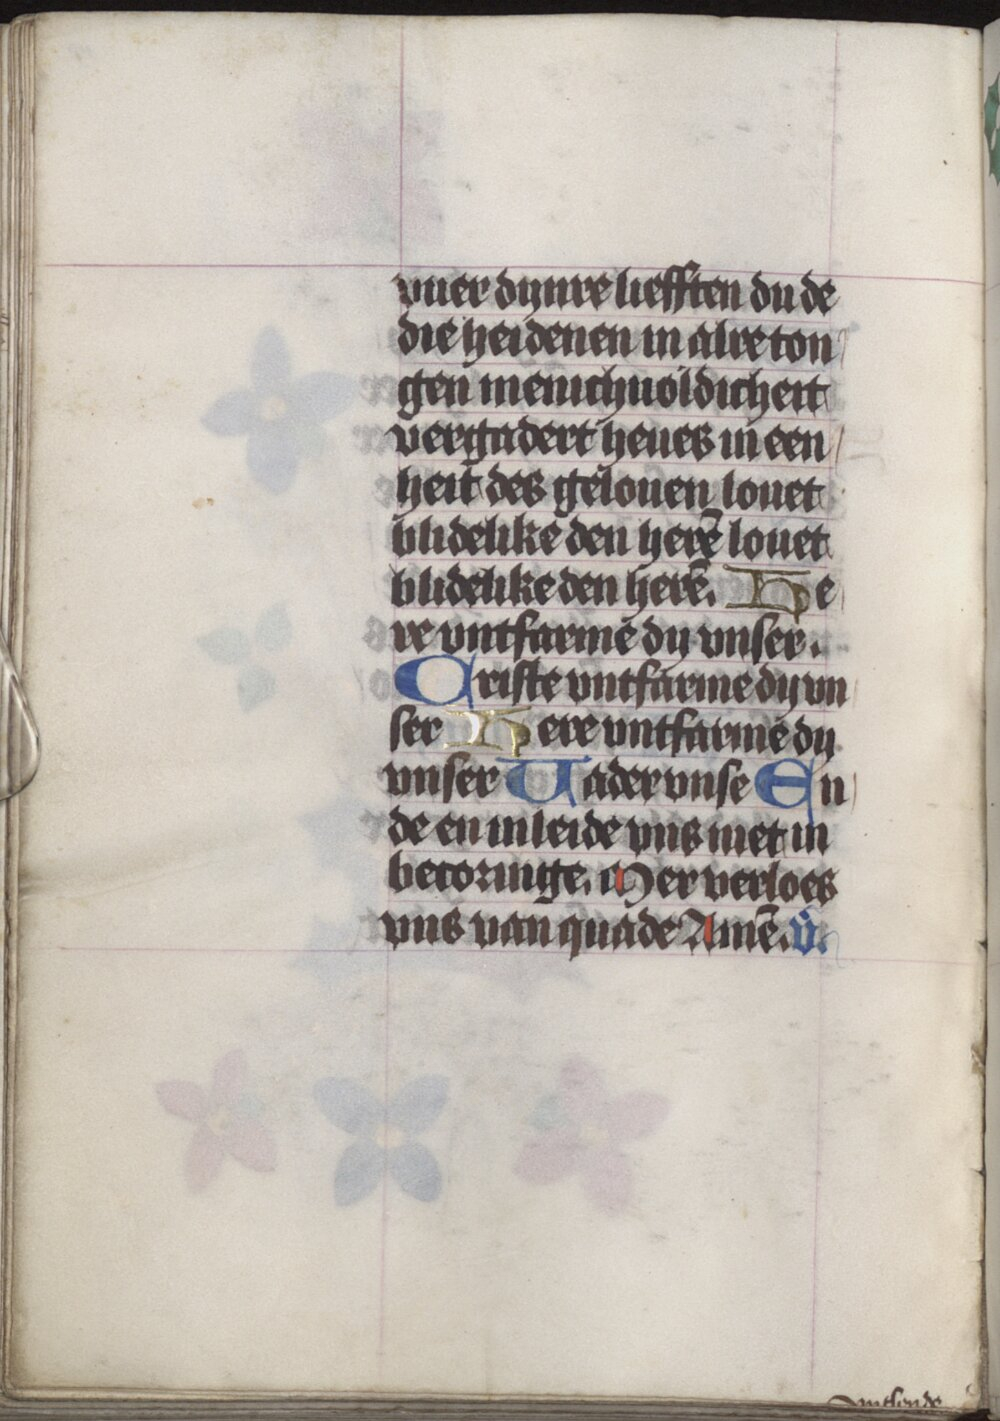 vuer dynre liefften du de
die heidenen in alre ton
gen menichuoldicheit
vergadert heues in een
heit des gelouen louet
blidelike den herē louet
blidelike den herē. He
re vntfarme dy vnser.
Criste vntfarme dy vn
ser Here vntfarme dy
vnser Vader vnse En
de en inleide vns niet in
becoringe. Mer verloes
vns van quade Amē. v̄.